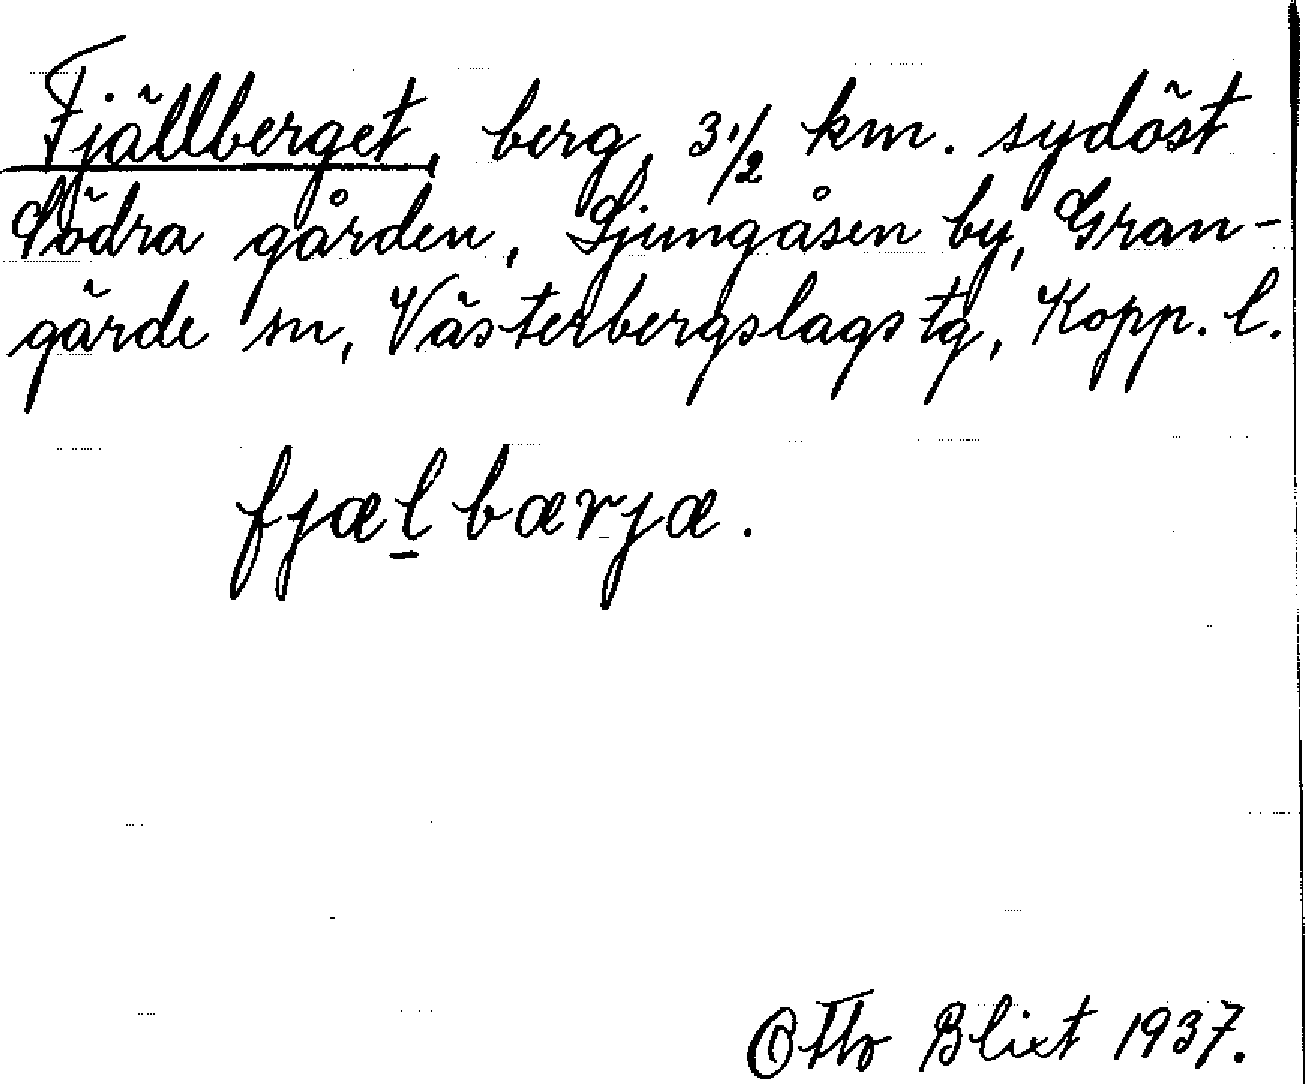 Fjällberget, berg, 3 1/2 km. sydöst
Södra gården, Ljungåsen by, Gran-
gärde sn, Västerbergslags tg, Kopp. l.
fjæl̲bærjæ.
Otto Blixt 1937.